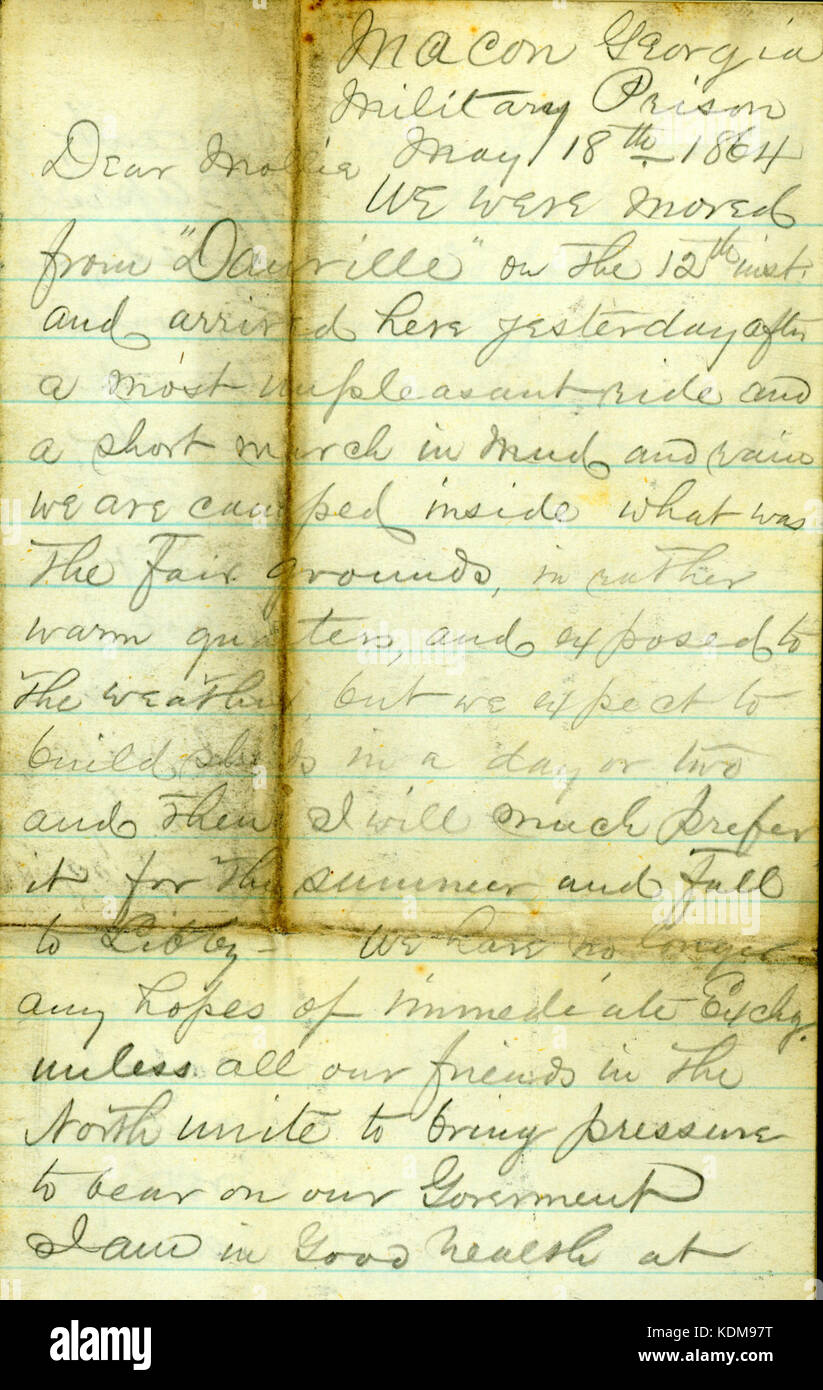 Macon Georgia
Military Prison
May 18th 1864
Dear Mollie
We were moved
from "Danville" on the 12th inst.
and arrived here yesterday after
a most unpleasant ride and
a short march in mud and rain
we are camped inside what was
the Fair grounds, in rather
warm quarters, and exposed to
the weather, but we expect to
build sheds in a day or two
and then I will much prefer
it for the summer and Fall
to Libby - We have no longer
any hopes of immediate Exchg.
unless all our friends in the
North unite to bring pressure
to bear on our Goverment
I am in Good health at
alamy
a
alamy
a
a
alamy
a
alamy
Image ID: KDM97T
www.alamy.com